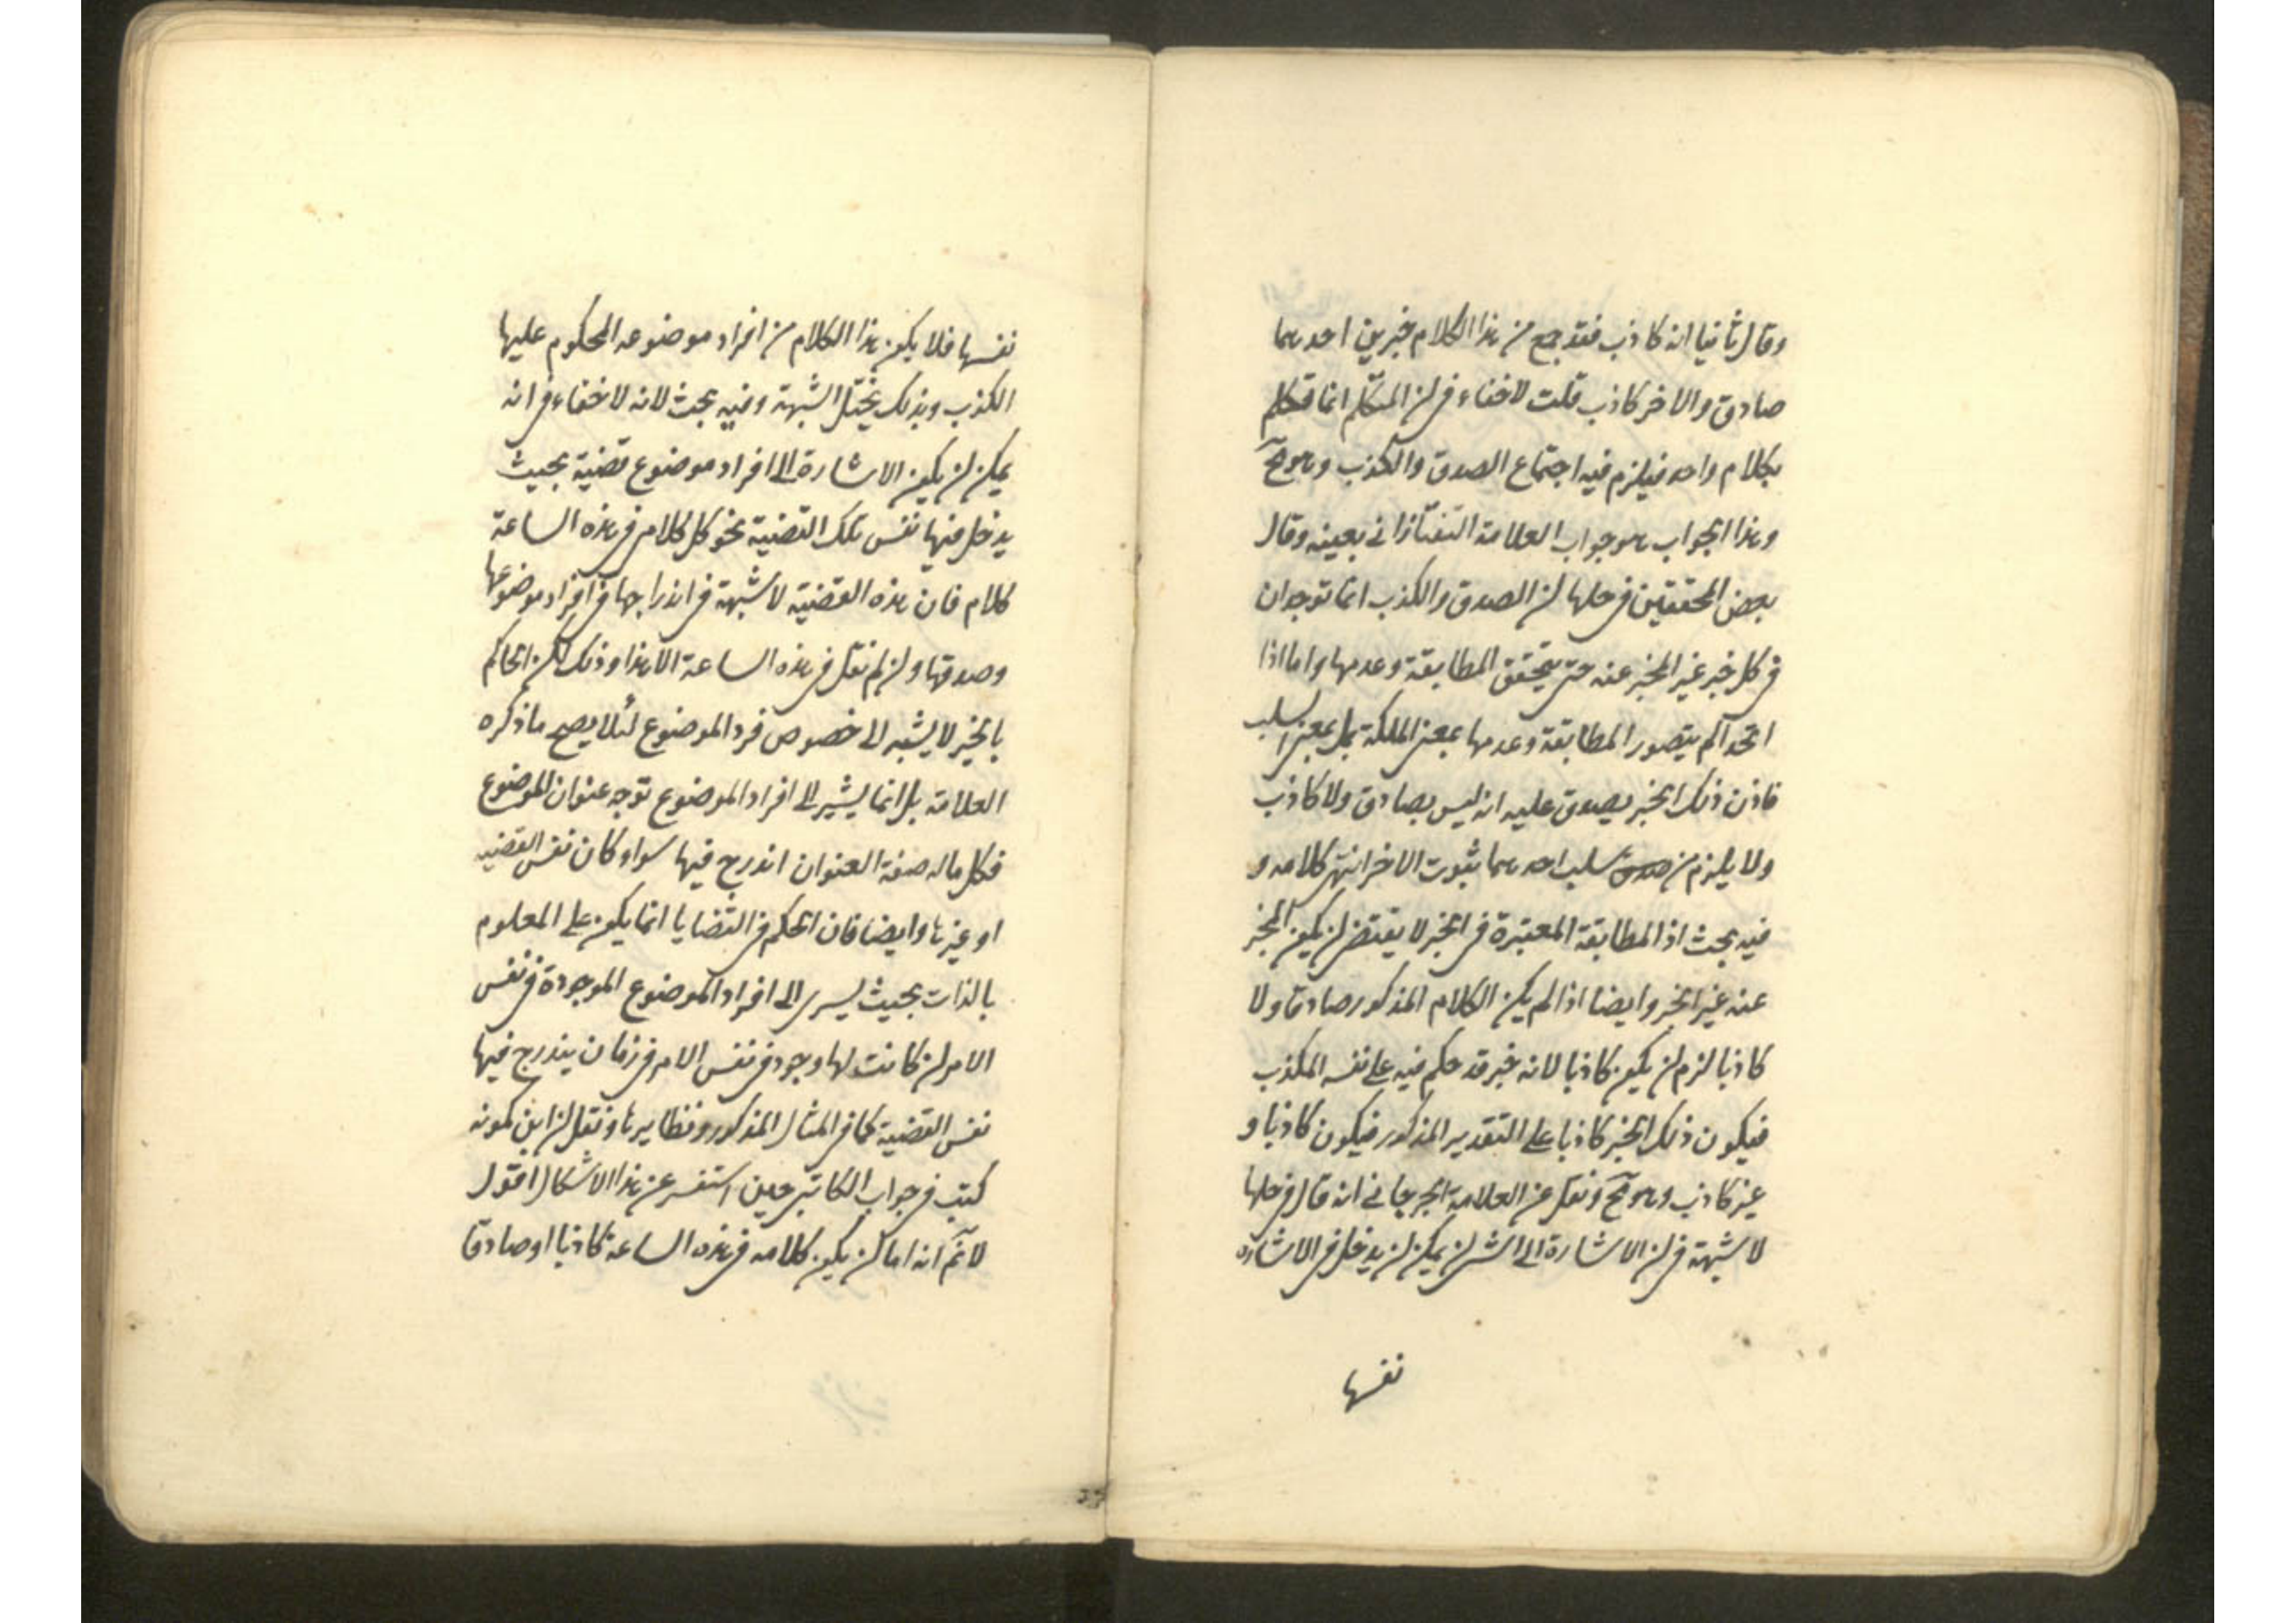 وقال ثانيا انه كاذب فقد جمع من هذا الكلام خبرين احدهما
صادق والاخر كاذب قلت لا خفاء فى ان المتكلم انما تكلم
بكلام واحد فيلزم فيه اجتماع الصدق والكذب وهو مح
وهذا الجواب هو جواب العلامة التفتازانى بعينه وقال
بعض المحققين فى حلها ان الصدق والكذب انما توجدان
فى كل خبر غير المخبر عنه حتى يتحقق المطابقة وعدمها واما اذا
اتحدا لم يتصور المطابقة وعدمها بمعنى الملكة بل بمعنى السلب
فاذن ذلك الخبر يصدق عليه انه ليس بصادق ولا كاذب
ولا يلزم من صدق سلب احدهما ثبوت الاخر انتهى كلامه و
فيه بحث اذ المطابقة المعتبرة فى الخبر لا يقتضى ان يكون المخبر
عنه غير الخبر وايضا اذا لم يكن الكلام المذكور صادقا ولا
كاذبا لزم ان يكون كاذبا لانه خبر قد حكم فيه على نفسه الكذب
فيكون ذلك الخبر كاذبا على التقدير المذكور فيكون كاذبا و
غير كاذب وهو مح ونقل عن العلامة الجرجانى انه قال فى حلها
لا شبهة فى ان الاشارة الى الشئ لن يمكن ان يدخل فى الاشاره
نفسها
نفسها فلا يكون هذا الكلام من افراد موضوعه المحكوم عليها
الكذب وبذلك ينحل الشبهة وفيه بحث لانه لا خفاء فى انه
يمكن ان يكون الاشارة الى افراد موضوع قضية بحيث
يدخل فيها نفس تلك القضية نحو كل كلامى فى هذه الساعة
كلام فان هذه القضية لا شبهة فى اندراجها فى افراد موضوعها
وصدقها وان لم نقل فى هذه الساعة الا هذا وذلك لان الحاكم
بالخبر لا يشير الى خصوص فرد الموضوع لئلا يصح ما ذكره
العلامة بل انما يشير الى افراد الموضوع توجه عنوان الموضوع
فكل ماله صفة العنوان اندرج فيها سواء كان نفس القضيه
او غيرها وايضا فان الحكم فى القضايا انما يكون على المعلوم
بالذات بحيث يسرى الى افراد الموضوع الموجودة فى نفس
الامر ان كانت لها وجود فى نفس الامر فى زمان يندرج فيها
نفس القضية كما فى المثال المذكور ونظايرها ونقل ان ابن كمونه
كتب فى جواب الكاتبى حين استفسر عن هذا الاشكال اقول
لا نم انه اما ان يكون كلامه فى هذه الساعة كاذبا او صادقا